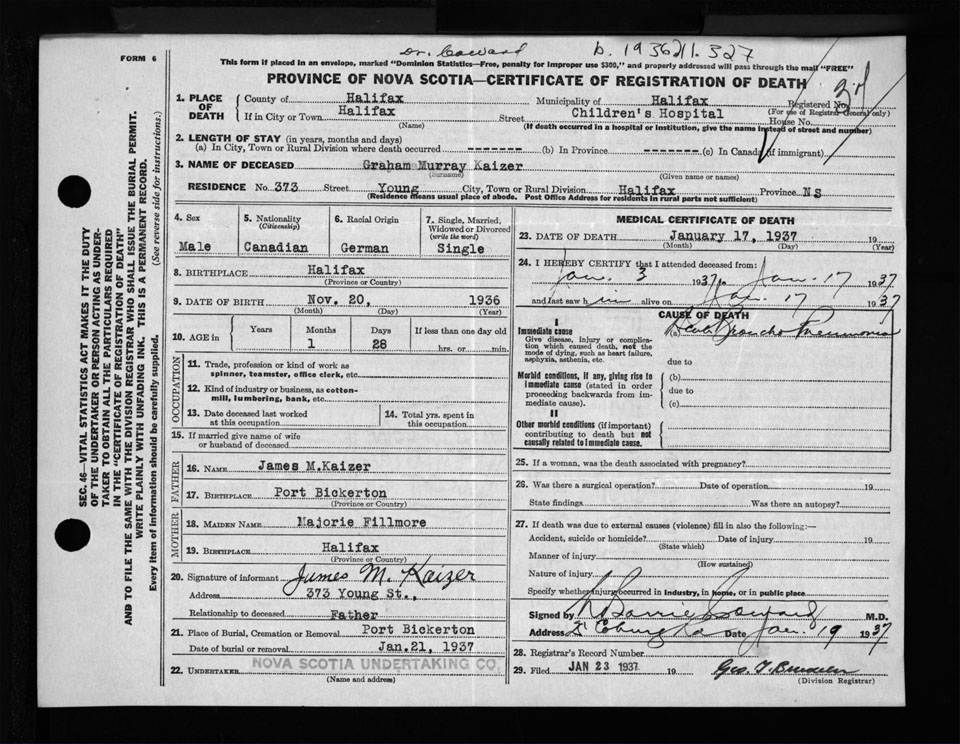 Dr. Coward b. 1936211.327
FORM 6
This form if placed in an envelope, marked "Dominion Statistics—Free, penalty for improper use $300," and properly addressed will pass through the mail "FREE"
PROVINCE OF NOVA SCOTIA—CERTIFICATE OF REGISTRATION OF DEATH
1. PLACE OF DEATH
County of Halifax Municipality of Halifax Registered No.
(For use of Registrar General only)
If in City or Town Halifax Street Children's Hospital House No.
(Name) (If death occurred in a hospital or institution, give the name instead of street and number)
2. LENGTH OF STAY (in years, months and days)
(a) In City, Town or Rural Division where death occurred ------- (b) In Province ------- (c) In Canada (if immigrant)
3. NAME OF DECEASED Graham Murray Kaizer
(Surname) (Given name or names)
RESIDENCE No. 373 Street Young City, Town or Rural Division Halifax Province NS
(Residence means usual place of abode. Post Office Address for residents in rural parts not sufficient)
4. Sex
Male
5. Nationality
(Citizenship)
Canadian
6. Racial Origin
German
7. Single, Married, Widowed or Divorced
(write the word)
Single
8. BIRTHPLACE Halifax
(Province or Country)
9. DATE OF BIRTH Nov. 20, 1936
(Month) (Day) (Year)
10. AGE in
Years Months Days If less than one day old
1 28 hrs. or min.
OCCUPATION
11. Trade, profession or kind of work as
spinner, teamster, office clerk, etc.
12. Kind of industry or business, as cotton-
mill, lumbering, bank, etc.
13. Date deceased last worked
at this occupation
14. Total yrs. spent in
this occupation
15. If married give name of wife
or husband of deceased
FATHER
16. NAME James M.Kaizer
17. BIRTHPLACE Port Bickerton
(Province or Country)
MOTHER
18. MAIDEN NAME Majorie Fillmore
19. BIRTHPLACE Halifax
(Province or Country)
20. Signature of informant James M. Kaizer
Address 373 Young St.,
Relationship to deceased Father
21. Place of Burial, Cremation or Removal Port Bickerton
Date of burial or removal Jan.21, 1937
22. UNDERTAKER NOVA SCOTIA UNDERTAKING CO.
(Name and address)
MEDICAL CERTIFICATE OF DEATH
23. DATE OF DEATH January 17, 1937 19
(Month) (Day) (Year)
24. I HEREBY CERTIFY that I attended deceased from:
Jan. 3 1937 to Jan. 17 1937
and last saw him alive on Jan. 17 1937
CAUSE OF DEATH
I
Immediate cause (a) Broncho Pneumonia
Give disease, injury or complica-
tion which caused death, not the
mode of dying, such as heart failure,
asphyxia, asthenia, etc.
due to
Morbid conditions, if any, giving rise to
immediate cause (stated in order
proceeding backwards from im-
mediate cause).
(b)
due to
(c)
II
Other morbid conditions (if important)
contributing to death but not
causally related to immediate cause.
25. If a woman, was the death associated with pregnancy?
26. Was there a surgical operation? Date of operation 19
State findings Was there an autopsy?
27. If death was due to external causes (violence) fill in also the following:—
Accident, suicide or homicide? Date of injury 19
(State which)
Manner of injury
(How sustained)
Nature of injury
Specify whether injury occurred in industry, in home, or in public place
Signed by N Barrie Coward M.D.
Address Date Jan. 19 1937
28. Registrar's Record Number
29. Filed JAN 23 1937 19 Geo. T.
(Division Registrar)
SEC. 46—VITAL STATISTICS ACT MAKES IT THE DUTY
OF THE UNDERTAKER OR PERSON ACTING AS UNDER-
TAKER TO OBTAIN ALL THE PARTICULARS REQUIRED
IN THE "CERTIFICATE OF REGISTRATION OF DEATH"
AND TO FILE THE SAME WITH THE DIVISION REGISTRAR WHO SHALL ISSUE THE BURIAL PERMIT.
WRITE PLAINLY WITH UNFADING INK. THIS IS A PERMANENT RECORD.
Every item of information should be carefully supplied. (See reverse side for instructions.)